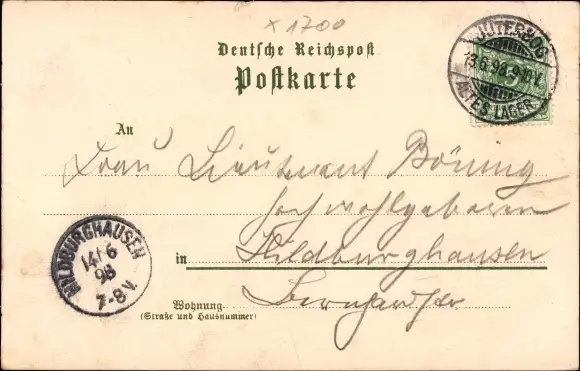 x 1700
Deutsche Reichspost
Postkarte
JÜTERBOG
13.6.98.9-10V.
ALTES LAGER
An
Frau Lieutenant Bönung
Hochwohlgeboren
in Hildburghausen
HILDBURGHAUSEN
14/6
98
7-8V.
Wohnung
(Straße und Hausnummer)